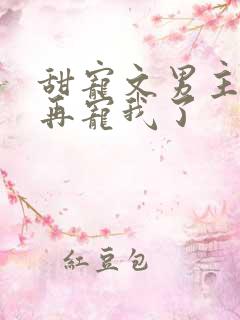 甜寵文男主
再寵我了
紅豆包